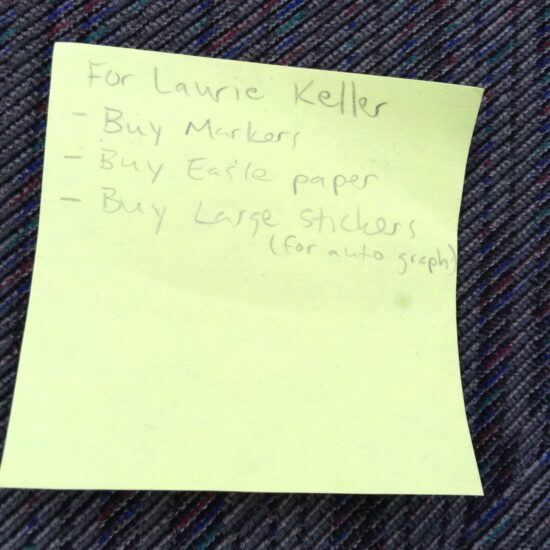 For Laurie Keller
- Buy Markers
- Buy Easle paper
- Buy Large Stickers
(for auto graph)